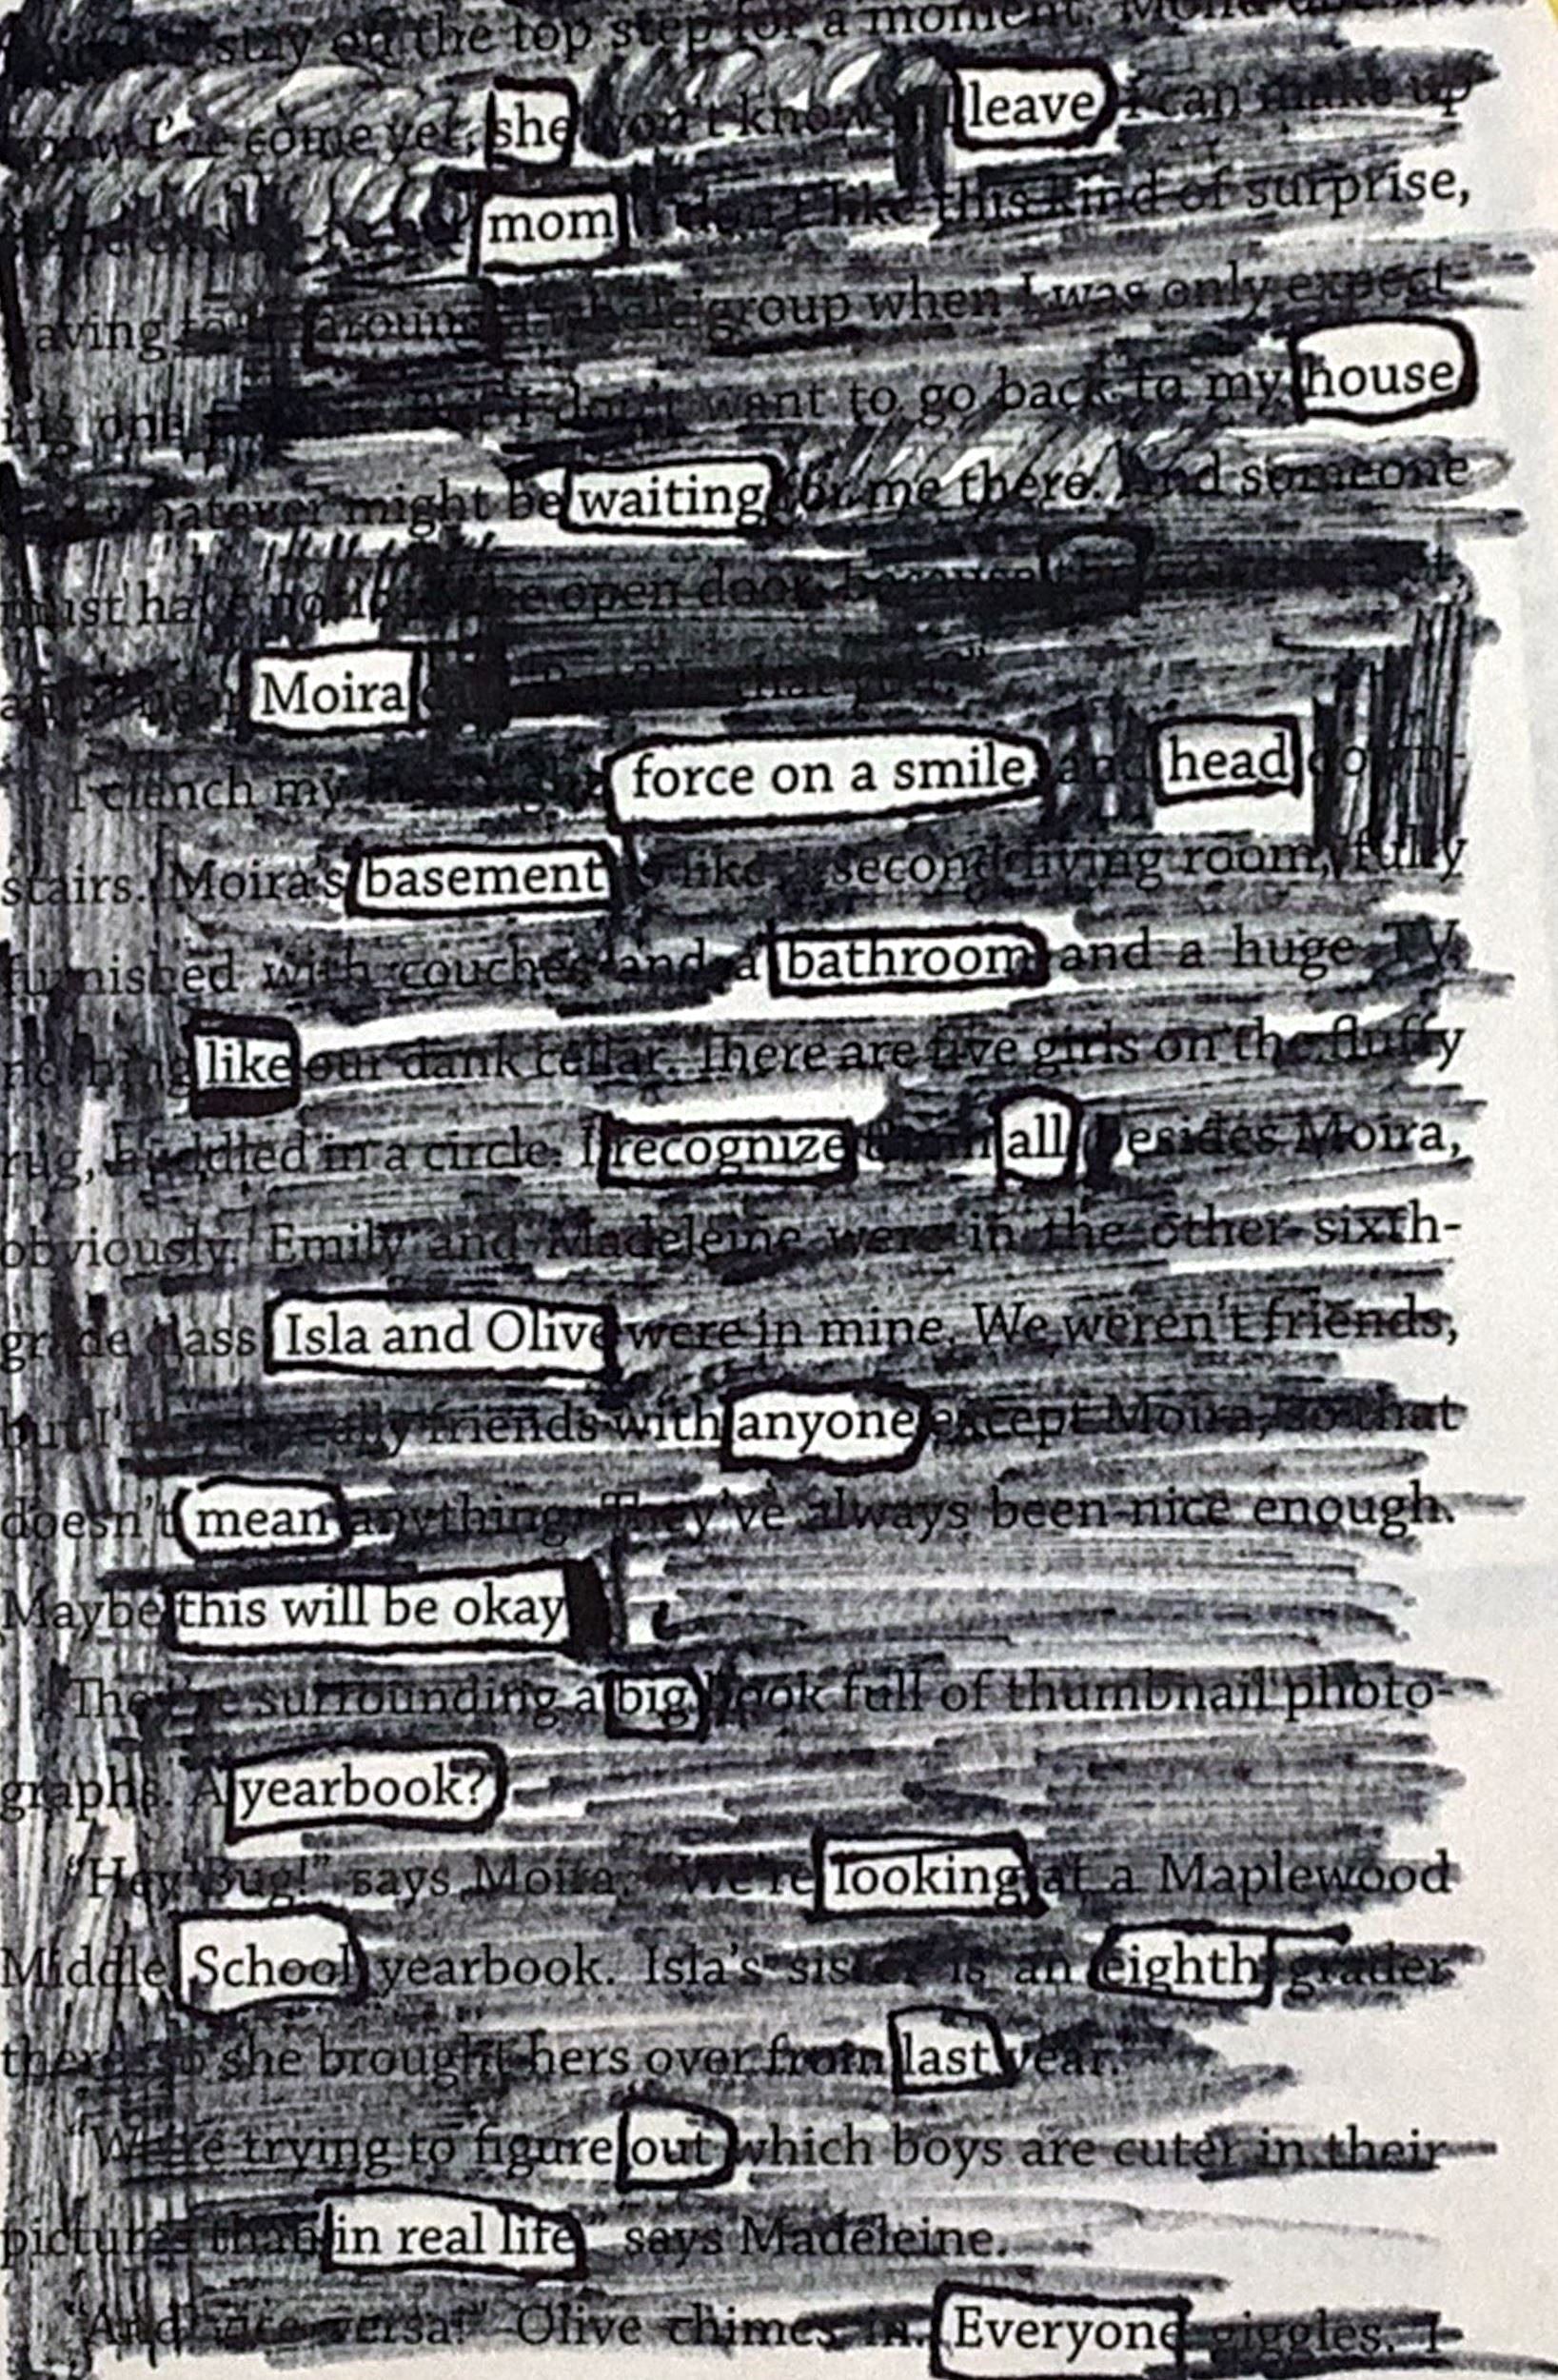 stay on the top step for a moment.
I've come yet, she won't know leave I can make up
mom don't like this kind of surprise,
having to around group when I was only expect-
ing one I don't want to go back to my house
whatever might be waiting for me there. And someone
must have the open door, because
Moira
I clench my force on a smile and head down-
stairs. Moira's basement is like second living room, fully
furnished with couches and a bathroom and a huge TV
nothing like our dank cellar. There are five girls on the fluffy
rug, huddled in a circle. I recognize them all besides Moira,
obviously. Emily and Madeleine were in the other sixth-
grade class Isla and Olive were in mine. We weren't friends,
but I really friends with anyone except Moira, so that
doesn't mean anything. They've always been nice enough.
Maybe this will be okay
They're surrounding a big book full of thumbnail photo-
graphs. A yearbook?
"Hey Bug!" says Moira. "We're looking at a Maplewood
Middle School yearbook. Isla's sister is an eighth grader
there, so she brought hers over from last year.
"We're trying to figure out which boys are cuter in their
pictures than in real life," says Madeleine.
"And vice versa!" Olive chimes in. Everyone giggles. I